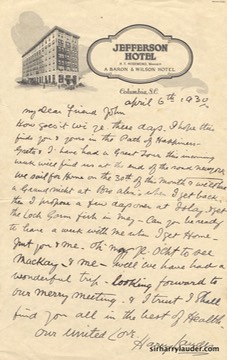 JEFFERSON
HOTEL
A BARON & WILSON HOTEL
Columbia, S.C.
April 6th 1930
My Dear Friend John
How goes't wi ye these days. I hope this
finds you & yours in the Path of Happiness
Greta & I have had a Great Tour this morning
week will find us at the end of the road
We sail for Home on the 30th of this month & we
a Grand night at when I get back,
then I propose a few days over at
the Loch Gorm fish in May - Can you be ready
to have a week with me when I get Home -
Just you & me. Oh
Mackay & me - Well we have had a
wonderful trip - looking forward to
our merry meeting. & I trust I shall
find you all in the best of Health
our united Love.
Harry Lauder
www.sirharrylauder.com